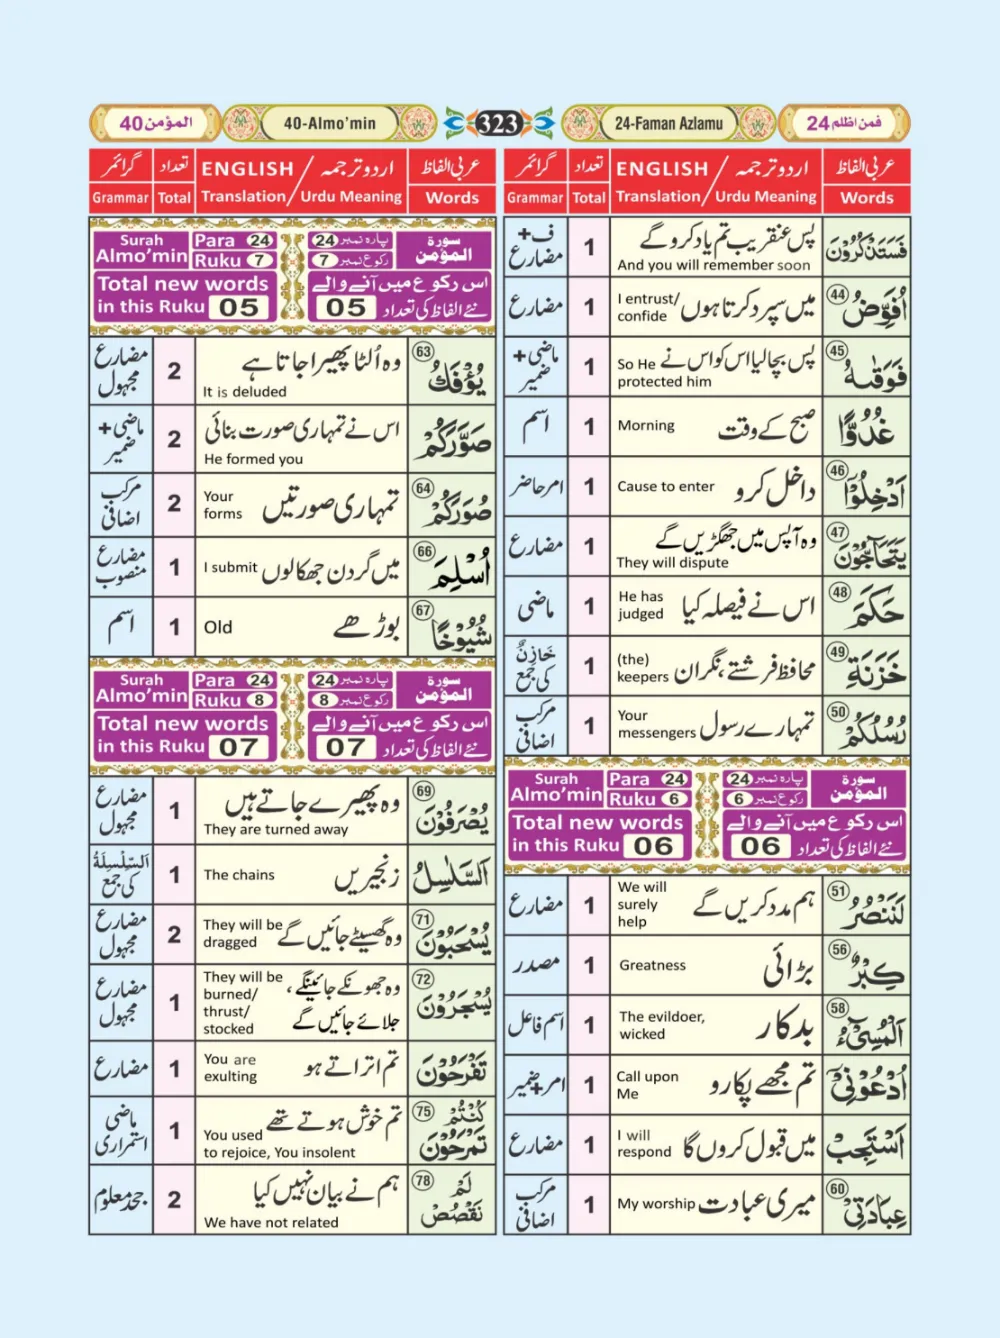 المؤمن 40
40-Almo’min
323
24-Faman Azlamu
فمن اظلم 24
عربی الفاظ اردو ترجمہ / ENGLISH تعداد گرائمر
Words Urdu Meaning / Translation Total Grammar
فَسَتَذْكُرُوْنَ پس عنقریب تم یاد کرو گے 1 ف+ مضارع
And you will remember soon
44 اُفَوِّضُ میں سپرد کرتا ہوں 1 مضارع
I entrust/
confide
45 فَوَقٰىهُ پس بچا لیا اس کو اس نے 1 ماضی+ ضمیر
So He
protected him
غُدُوًّا صبح کے وقت Morning 1 اسم
46 اَدْخِلُوْٓا داخل کرو Cause to enter 1 امر حاضر
47 يَتَحَآجُّوْنَ وہ آپس میں جھگڑیں گے 1 مضارع
They will dispute
48 حَكَمَ اس نے فیصلہ کیا 1 ماضی
He has
judged
49 خَزَنَةِ محافظ فرشتے، نگران 1 خَازِنٌ کی جمع
(the)
keepers
50 رُسُلُكُمْ تمہارے رسول 1 مرکب اضافی
Your
messengers
Surah Almo’min Para 24 پارہ نمبر 24 سورۃ المؤمن
Ruku 6 رکوع نمبر 6
Total new words اس رکوع میں آنے والے
in this Ruku 06 06 نئے الفاظ کی تعداد
51 لَنَنْصُرُ ہم مدد کریں گے 1 مضارع
We will
surely
help
56 كِبْرٌ بڑائی Greatness 1 مصدر
58 الْمُسِيْٓءُ بدکار 1 اسم فاعل
The evildoer,
wicked
اُدْعُوْنِيْٓ تم مجھے پکارو 1 امر+ضمیر
Call upon
Me
اَسْتَجِبْ میں قبول کروں گا 1 مضارع
I will
respond
60 عِبَادَتِيْ میری عبادت My worship 1 مرکب اضافی
عربی الفاظ اردو ترجمہ / ENGLISH تعداد گرائمر
Words Urdu Meaning / Translation Total Grammar
Surah Almo’min Para 24 پارہ نمبر 24 سورۃ المؤمن
Ruku 7 رکوع نمبر 7
Total new words اس رکوع میں آنے والے
in this Ruku 05 05 نئے الفاظ کی تعداد
63 يُؤْفَكُ وہ اُلٹا پھیرا جاتا ہے 2 مضارع مجہول
It is deluded
صَوَّرَكُمْ اس نے تمہاری صورت بنائی 2 ماضی+ ضمیر
He formed you
64 صُوَرَكُمْ تمہاری صورتیں 2 مرکب اضافی
Your
forms
66 اُسْلِمَ میں گردن جھکا لوں I submit 1 مضارع منصوب
67 شُيُوْخًا بوڑھے Old 1 اسم
Surah Almo’min Para 24 پارہ نمبر 24 سورۃ المؤمن
Ruku 8 رکوع نمبر 8
Total new words اس رکوع میں آنے والے
in this Ruku 07 07 نئے الفاظ کی تعداد
69 يُصْرَفُوْنَ وہ پھیرے جاتے ہیں 1 مضارع مجہول
They are turned away
اَلسَّلٰسِلُ زنجیریں The chains 1 اَلسِّلْسِلَةُ کی جمع
71 يُسْحَبُوْنَ وہ گھسیٹے جائیں گے 2 مضارع مجہول
They will be
dragged
72 يُسْجَرُوْنَ وہ جھونکے جائینگے، جلائے جائیں گے 1 مضارع مجہول
They will be
burned/
thrust/
stocked
تَفْرَحُوْنَ تم اتراتے ہو 1 مضارع
You are
exulting
75 كُنْتُمْ تَمْرَحُوْنَ تم خوش ہوتے تھے 1 ماضی استمراری
You used
to rejoice, You insolent
78 لَمْ نَقْصُصْ ہم نے بیان نہیں کیا 2 جحد معلوم
We have not related